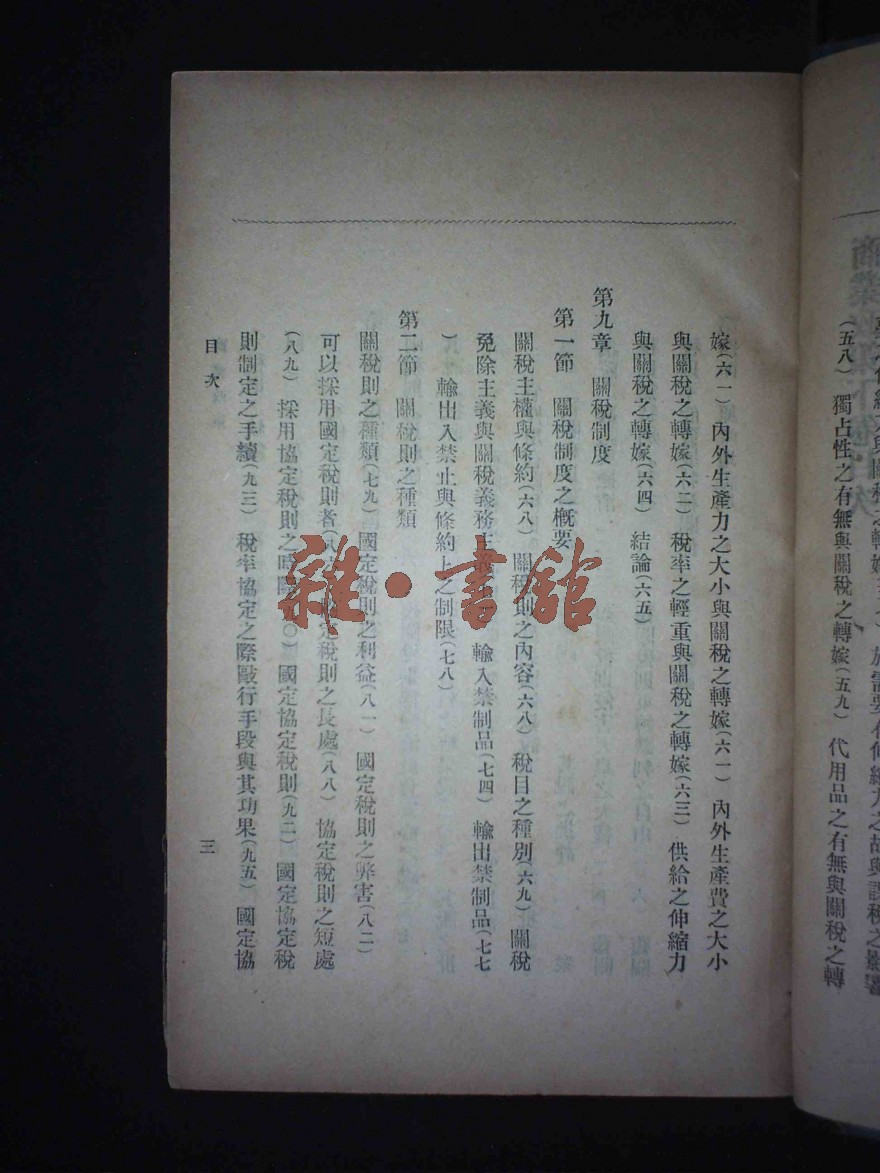 （五八） 獨占性之有無與關稅之轉嫁（五九） 代用品之有無與關稅之轉
嫁（六一） 內外生產力之大小與關稅之轉嫁（六一） 內外生產費之大小
與關稅之轉嫁（六二） 稅率之輕重與關稅之轉嫁（六三） 供給之伸縮力
與關稅之轉嫁（六四） 結論（六五）
第九章 關稅制度
第一節 關稅制度之概要
關稅主權與條約（六八） 關稅則之內容（六八） 稅目之種別（六九） 關稅
免除主義與關稅義務主義 輸入禁制品（七四） 輸出禁制品（七七
） 輸出入禁止與條約上之制限（七八）
第二節 關稅則之種類
關稅則之種類（七九） 國定稅則之利益（八一） 國定稅則之弊害（八二）
可以採用國定稅則者 定稅則之長處（八八） 協定稅則之短處
（八九） 採用協定稅則之時 國定協定稅則（九二） 國定協定稅
則制定之手續（九三） 稅率協定之際敲行手段與其功果（九五） 國定協
目次
三
雜·書館